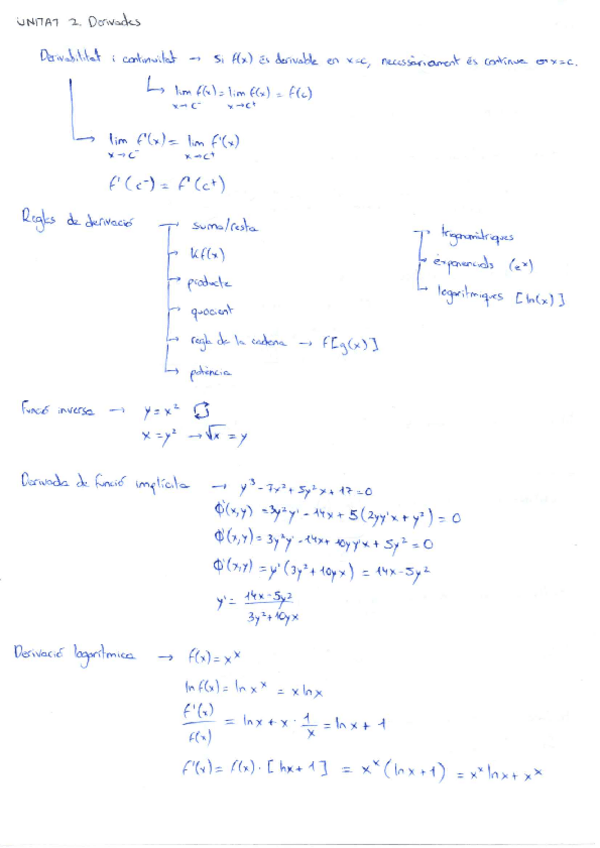 UNITAT 2. Derivades
Derivabilitat i continuïtat → Si f(x) és derivable en x=c, necessàriament és contínua en x=c.
lim f(x) = lim f(x) = f(c)
x→c⁻ x→c⁺
lim f'(x) = lim f'(x)
x→c⁻ x→c⁺
f'(c⁻) = f'(c⁺)
Regles de derivació
suma/resta
Kf(x)
producte
quocient
regla de la cadena → f[g(x)]
potència
trigonomètriques
exponencials (eˣ)
logarítmiques [ln(x)]
Funció inversa → y = x²
x = y² → √x = y
Derivada de funció implícita → y³ - 7x² + 5y²x + 17 = 0
Φ'(x,y) = 3y²y' - 14x + 5(2yy'x + y²) = 0
Φ'(x,y) = 3y²y' - 14x + 10yy'x + 5y² = 0
Φ'(x,y) = y'(3y² + 10yx) = 14x - 5y²
y' = 14x - 5y² / 3y² + 10yx
Derivació logarítmica → f(x) = xˣ
ln f(x) = ln xˣ = x ln x
f'(x) / f(x) = ln x + x · 1/x = ln x + 1
f'(x) = f(x) · [ln x + 1] = xˣ (ln x + 1) = xˣ ln x + xˣ